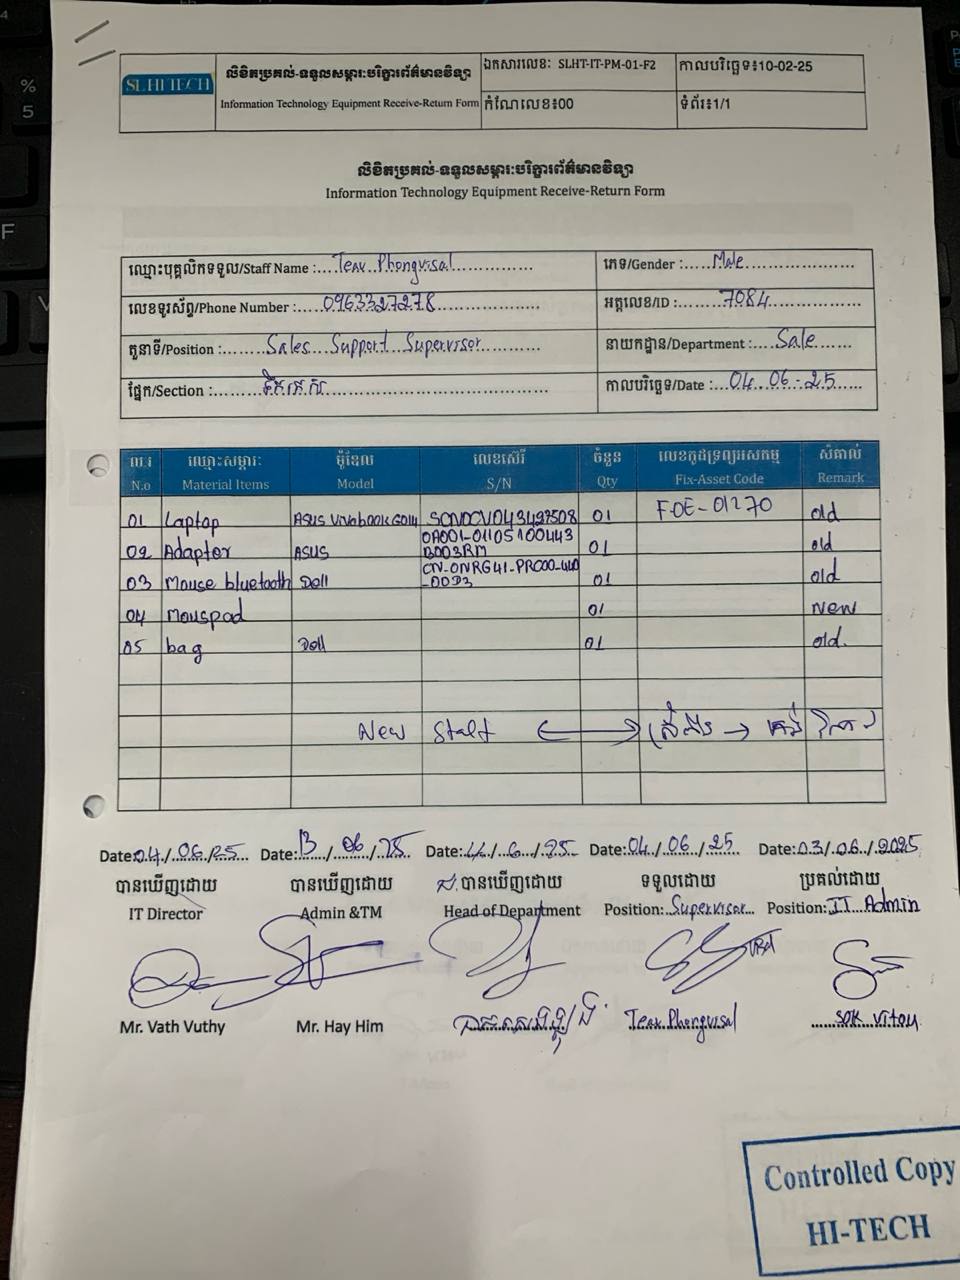 SLHI TECH
លិខិតប្រគល់-ទទួលសម្ភារៈបរិក្ខារព័ត៌មានវិទ្យា
Information Technology Equipment Receive-Return Form
ឯកសារលេខៈ SLHT-IT-PM-01-F2
កាលបរិច្ឆេទ៖10-02-25
កំណែលេខ៖00
ទំព័រ៖1/1
លិខិតប្រគល់-ទទួលសម្ភារៈបរិក្ខារព័ត៌មានវិទ្យា
Information Technology Equipment Receive-Return Form
ឈ្មោះបុគ្គលិកទទួល/Staff Name :....Teav Phongvisal
ភេទ/Gender :.....Male
លេខទូរស័ព្ទ/Phone Number :.......0963327278
អត្តលេខ/ID :.........7084
តួនាទី/Position :........Sales Support Supervisor
នាយកដ្ឋាន/Department :....Sale
ផ្នែក/Section :.........
កាលបរិច្ឆេទ/Date :...04.06-25
ល.រ ឈ្មោះសម្ភារៈ ម៉ូឌែល លេខស៊េរី ចំនួន លេខកូដទ្រព្យអសកម្ម សំគាល់
N.o Material Items Model S/N Qty Fix-Asset Code Remark
01 Laptop ASUS Vivobook GO14 01 FOE-01270 old
02 Adapter ASUS 0A001-01105100443 B003RM 01 old
03 Mouse bluetooth Dell 01 old
04 Mouspad 01 New
05 bag Dell 01 old.
New Staff
Date:04./.06./25 Date:13/06/25 Date:11/6/25 Date:04/06/25 Date:03/06/2025
បានឃើញដោយ បានឃើញដោយ បានឃើញដោយ ទទួលដោយ ប្រគល់ដោយ
IT Director Admin &TM Head of Department Position:.Supervisor... Position:IT Admin
Mr. Vath Vuthy Mr. Hay Him Teav Phongvisal SOK Vitou
Controlled Copy
HI-TECH